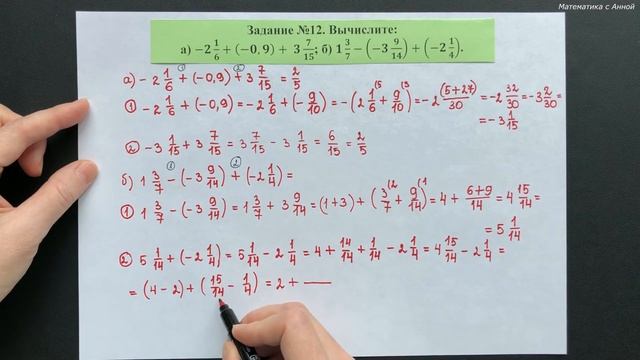 Математика с Анной
Задание №12. Вычислите:
а) −2 1/6 + (−0,9) + 3 7/15; б) 1 3/7 − (−3 9/14) + (−2 1/4).
а) − 2 1/6 + (−0,9) + 3 7/15 = 2/5
① − 2 1/6 + (−0,9) = −2 1/6 + (− 9/10) = −(2 1/6 + 9/10) = −2 (5+27)/30 = −2 32/30 = −3 2/30 =
= −3 1/15
② −3 1/15 + 3 7/15 = 3 7/15 − 3 1/15 = 6/15 = 2/5
б) 1 3/7 − (−3 9/14) + (−2 1/4) =
① 1 3/7 − (−3 9/14) = 1 3/7 + 3 9/14 = (1+3) + (3/7 + 9/14) = 4 + 6+9/14 = 4 15/14 =
= 5 1/14
② 5 1/14 + (−2 1/4) = 5 1/14 − 2 1/4 = 4 + 14/14 + 1/14 − 2 1/4 = 4 15/14 − 2 1/4 =
= (4 − 2) + (15/14 − 1/4) = 2 +